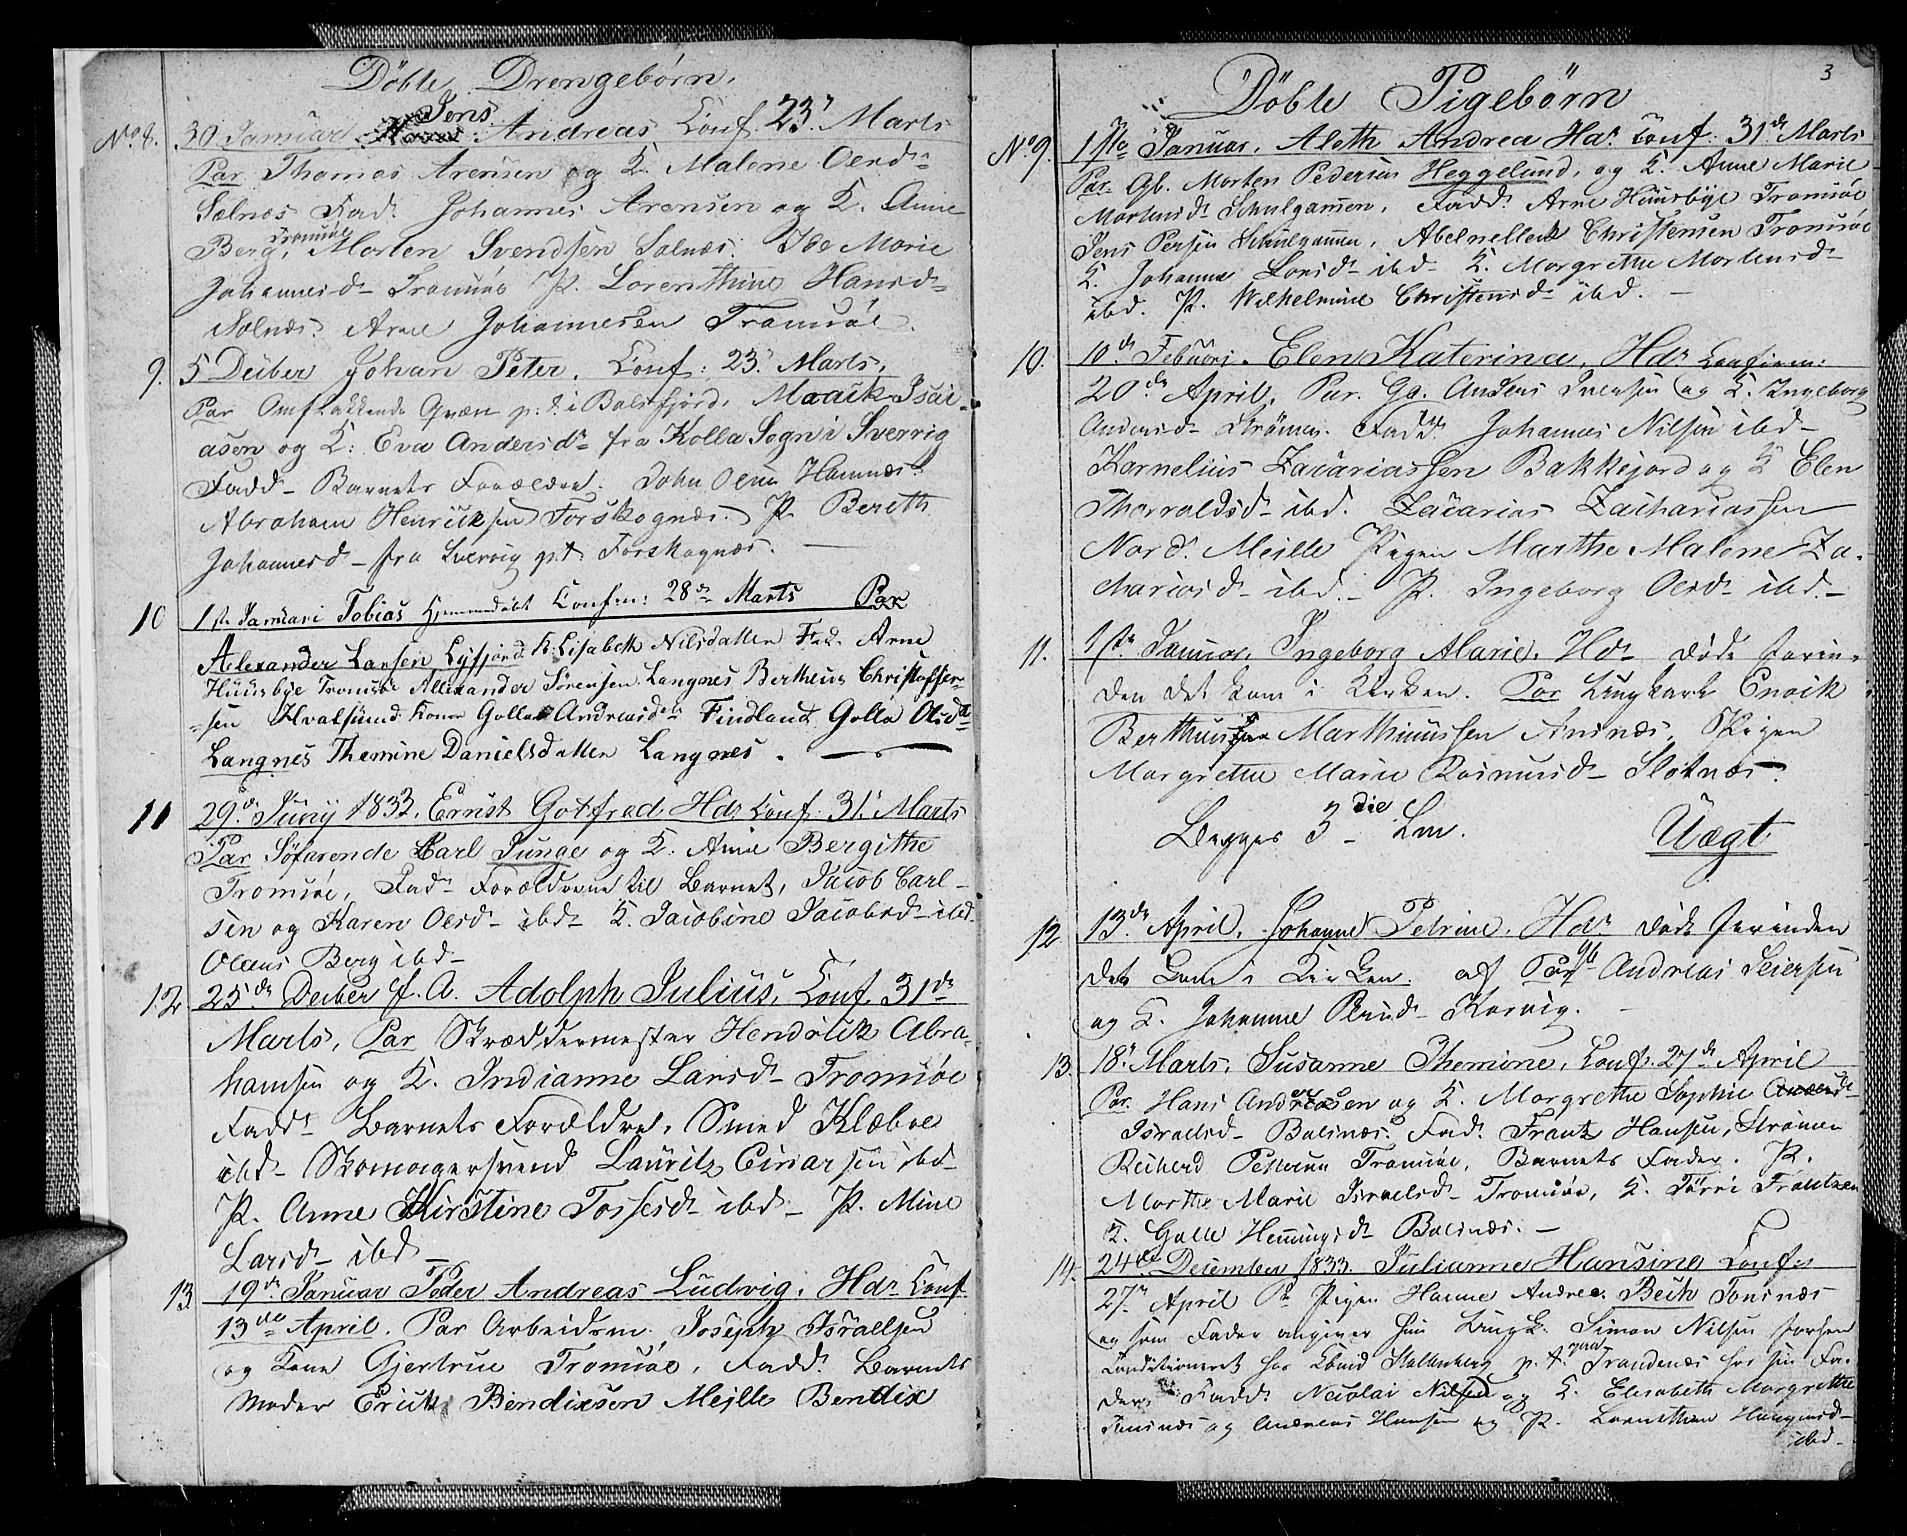 Döbte Drengebörn.
Jens
No 8. 30 Januar Andreas Conf. 23. Marts
Par Thomas Arensen og K. Malene Oersd.
Solnæs Fad. Johannes Arensen og K. Anne
Tromsöe
Berg, Morten Svendsen Solnæs. Ide Marie
Johannesd. Tromsöe P. Lorenthine Hansd.
Solnæs. Arne Johannesen Tromsöe.
9. 5 Deciber Johan Peter. Conf: 23. Marts.
Par Omflakkende Qvæn p. t. i Balsfjord. Maaick Isai-
asen og K: Eva Andersd. fra Kolla Sogn i Sverrig
Fadd. Barnets Forældre. John Olsen Hamnæs.
Abraham Henriksen Forskognæs. P. Bereth
Johannesd. fra Sverrig p.t. Forskognæs.
10 1ste Januari Tobias hjemmedöbt Confirm: 28de Marts Par
Alexander Larsen Lysfjord K. Lisabeth Nilsdatter Fad. Arne
Huusbye Tromsöe Allexander Sörensen Langnes Bertheus Christoffer-
sen Hvalsund Konen Gollas Andreasd. Findland Golla Olsd.
Langnes Themine Danielsdatter Langnes.
11 29de Juny 1833. Ernst Gotfred Hdr Conf. 31. Marts
Par Söfarende Carl Junge og K. Anne Bergithe
Tromsöe, Fad. Forældrene til Barnet, Jacob Carl-
sen og Karen Oersd. ibd. K. Jacobine Jacobsd. ibd.
Olaus Berg ibd.
12 25de Deciber f. A. Adolph Julius, Conf 31de
Marts, Par Skræddermester Hendrick Abra-
hamsen og K. Indianne Larsd. Tromsöe
Fadd. Barnets Forældre, Smed Klæboe
ibd. Skomagersvend Lauritz Einarsen ibd.
P. Anne Kirstine Tossesd. ibd. P. Mine
Larsd. ibd.
13. 19de Januar Peder Andreas Ludvig. Hdr Conf
13de April. Par Arbeidsm. Joseph Israelsen
og Kone Gjertrue Tromsöe, Fadd. Barnets
Moder Erick Bendixsen Mejlle Bendix
3
Döbte Pigebörn
No 9. Januar. Aleth Andrea Hdr Conf: 31de Marts
Par. Gb. Morten Pedersen Heggelund, og K. Anne Marie
Mortensd. Skulgammen. Fadd. Arne Huusbye Tromsöe
Jens Persen Skulgammen, Christensen Tromsöe
K. Johanna Larsd. ibd. K. Morgrethe Mortensd.
ibd. P. Wilhelmine Christensd. ibd.
10. 10de Febuari. Elen Katerina, Hdr Confirm:
20de April, Par. Gb. Anders Iversen og K. Ingeborg
Andersd. Strömen. Fadd. Johannes Nilsen ibd.
Kornelius Zacariassen Bakkejord og K Elen
Thorvaldsd. ibd. Zacarias Zachariassen
Nord. Mejlle Pigen Marthe Malene Za-
chariasd. ibd. P. Ingeborg Oersd. ibd.
11. 1ste Januar, Ingeborg Marie. Hdr döde foren-
den det kom i Kirken. Par Ungkarl Enoik
Berthuus Marthinussen Ansnæs, Pigen
Morgrethe Marie Rasmusd. Slotnæs.
Begges 3die Lm. Uægt
12 13de April. Johanna Petrine. Hdr döde forinden
det kom i Kirken. af Par Gb. Andreas Seiersen
og K. Johanna Korvig.
13. 18. Marts. Susanne Themine, Conf. 27de April
Par. Hans Andreasen og K. Morgrethe Sophie
Israelsd. Balsnæs. Fad. Frantz Hansen, Strömen
Reiherd Pettersen Tromsöe, Barnets Fader. P.
Morthe Marie Israelsd. Tromsöe, K. Frantzen
K. Golle Hemmingsd. Balsnæs.
14. 24de December 1833 Julianne Hansine Conf:
27. April Pigen Hanne Andrea Bech Tonsnæs
og som Fader angiver hun Ungk. Simon Nilsen forhen
Conditioneret hos Kbmd Stoltenberg p. t. Trandenæs hos sin Fa-
der, Fadd. Nicolai Nilsen og K. Elisabeth Morgrethe
Tonsnæs og Andreas Hansen og P. Lorenthine Haagensd.
ibd.